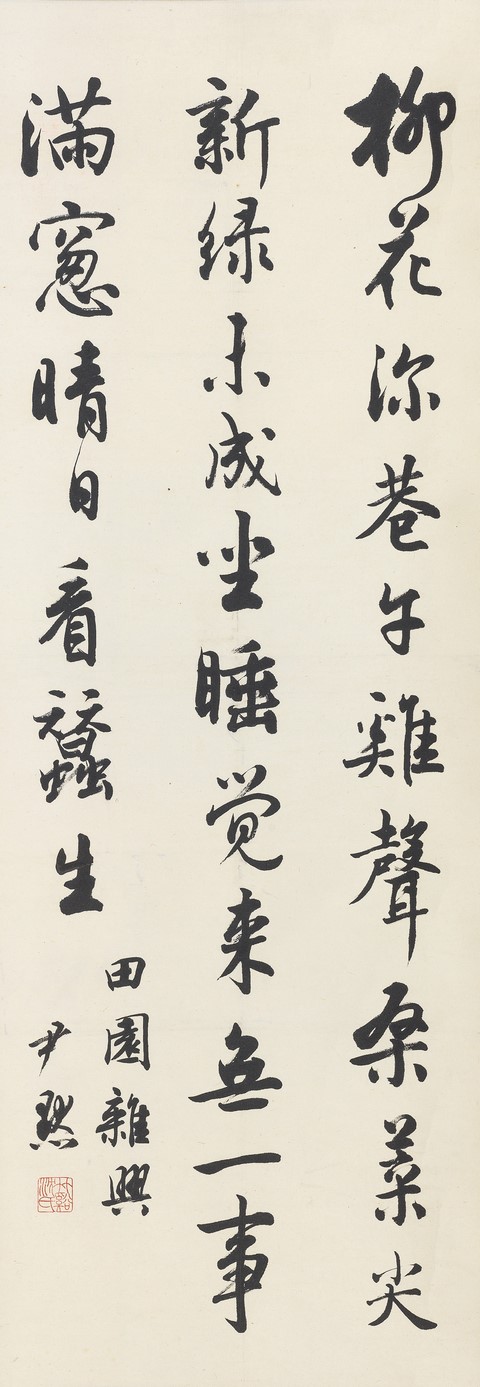 柳花深巷午雞聲桑葉尖
新绿未成坐睡觉来無一事
滿窻晴日看蠶生
田園雜興
尹默